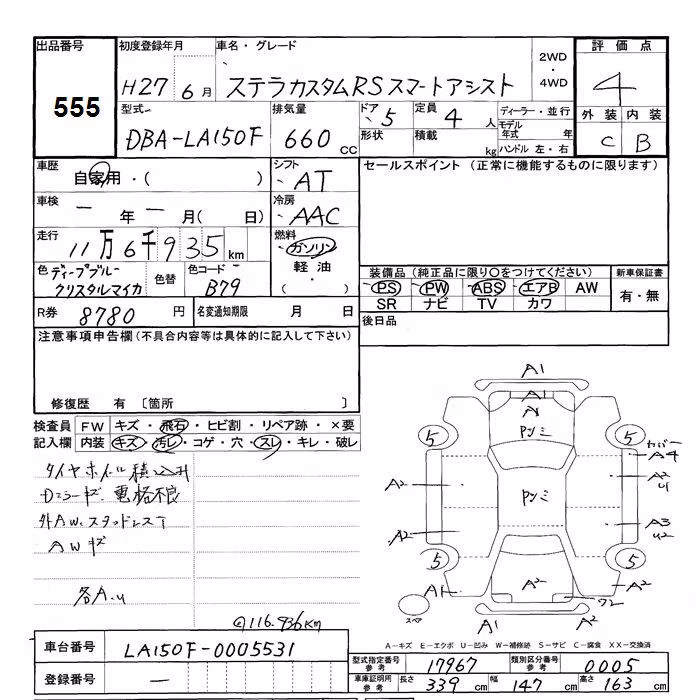 出品番号
555
初度登録年月
H27 6月
車名・グレード
ステラカスタムRSスマートアシスト
2WD
・
4WD
評価点
4
外装 内装
C B
型式
DBA-LA150F
排気量
660 CC
ドア
5
定員
4 人
形状
積載
kg
ディーラー・並行
モデル
年式 年
ハンドル 左・右
車歴
自家用・( )
シフト
AT
セールスポイント (正常に機能するものに限ります)
車検
ー年ー月( 日)
冷房
AAC
走行
11万6千935km
燃料
ガソリン
軽油
( ・ )
色
ディープブルー
クリスタルマイカ
色替
色コード
B79
装備品(純正品に限り○をつけてください)
PS PW ABS エアB AW
SR ナビ TV カワ
新車保証書
有・無
R券 8780 円
名変通知期限 月 日
後日品
注意事項申告欄(不具合内容等は具体的に記入して下さい)
修復歴 有 〔箇所
検査員
記入欄
FW キズ・飛石・ヒビ割・リペア跡・×要
内装 キズ・汚レ・コゲ・穴・スレ・キレ・破レ
タイヤホイル積込み
Dミラーキズ、電格不良
外AW、スタッドレスT
AWキズ
各A.U
@116.936Km
A1
A1
A
Pソミ
5
5
カバー
A4
A2
A2
U1
Pソミ
A2
A3
U2
5
5
A1
A2
A2
ワ2
スペア
A1
A2
A-キズ E-エクボ U-凹み W-補修跡 S-サビ C-腐食 XX-交換済
車台番号
LA150F-0005531
登録番号
ー
型式指定番号
参考
17967
類別区分番号
参考
0005
車庫証明用
参考
長さ 339 cm 幅 147 cm 高さ 163 cm